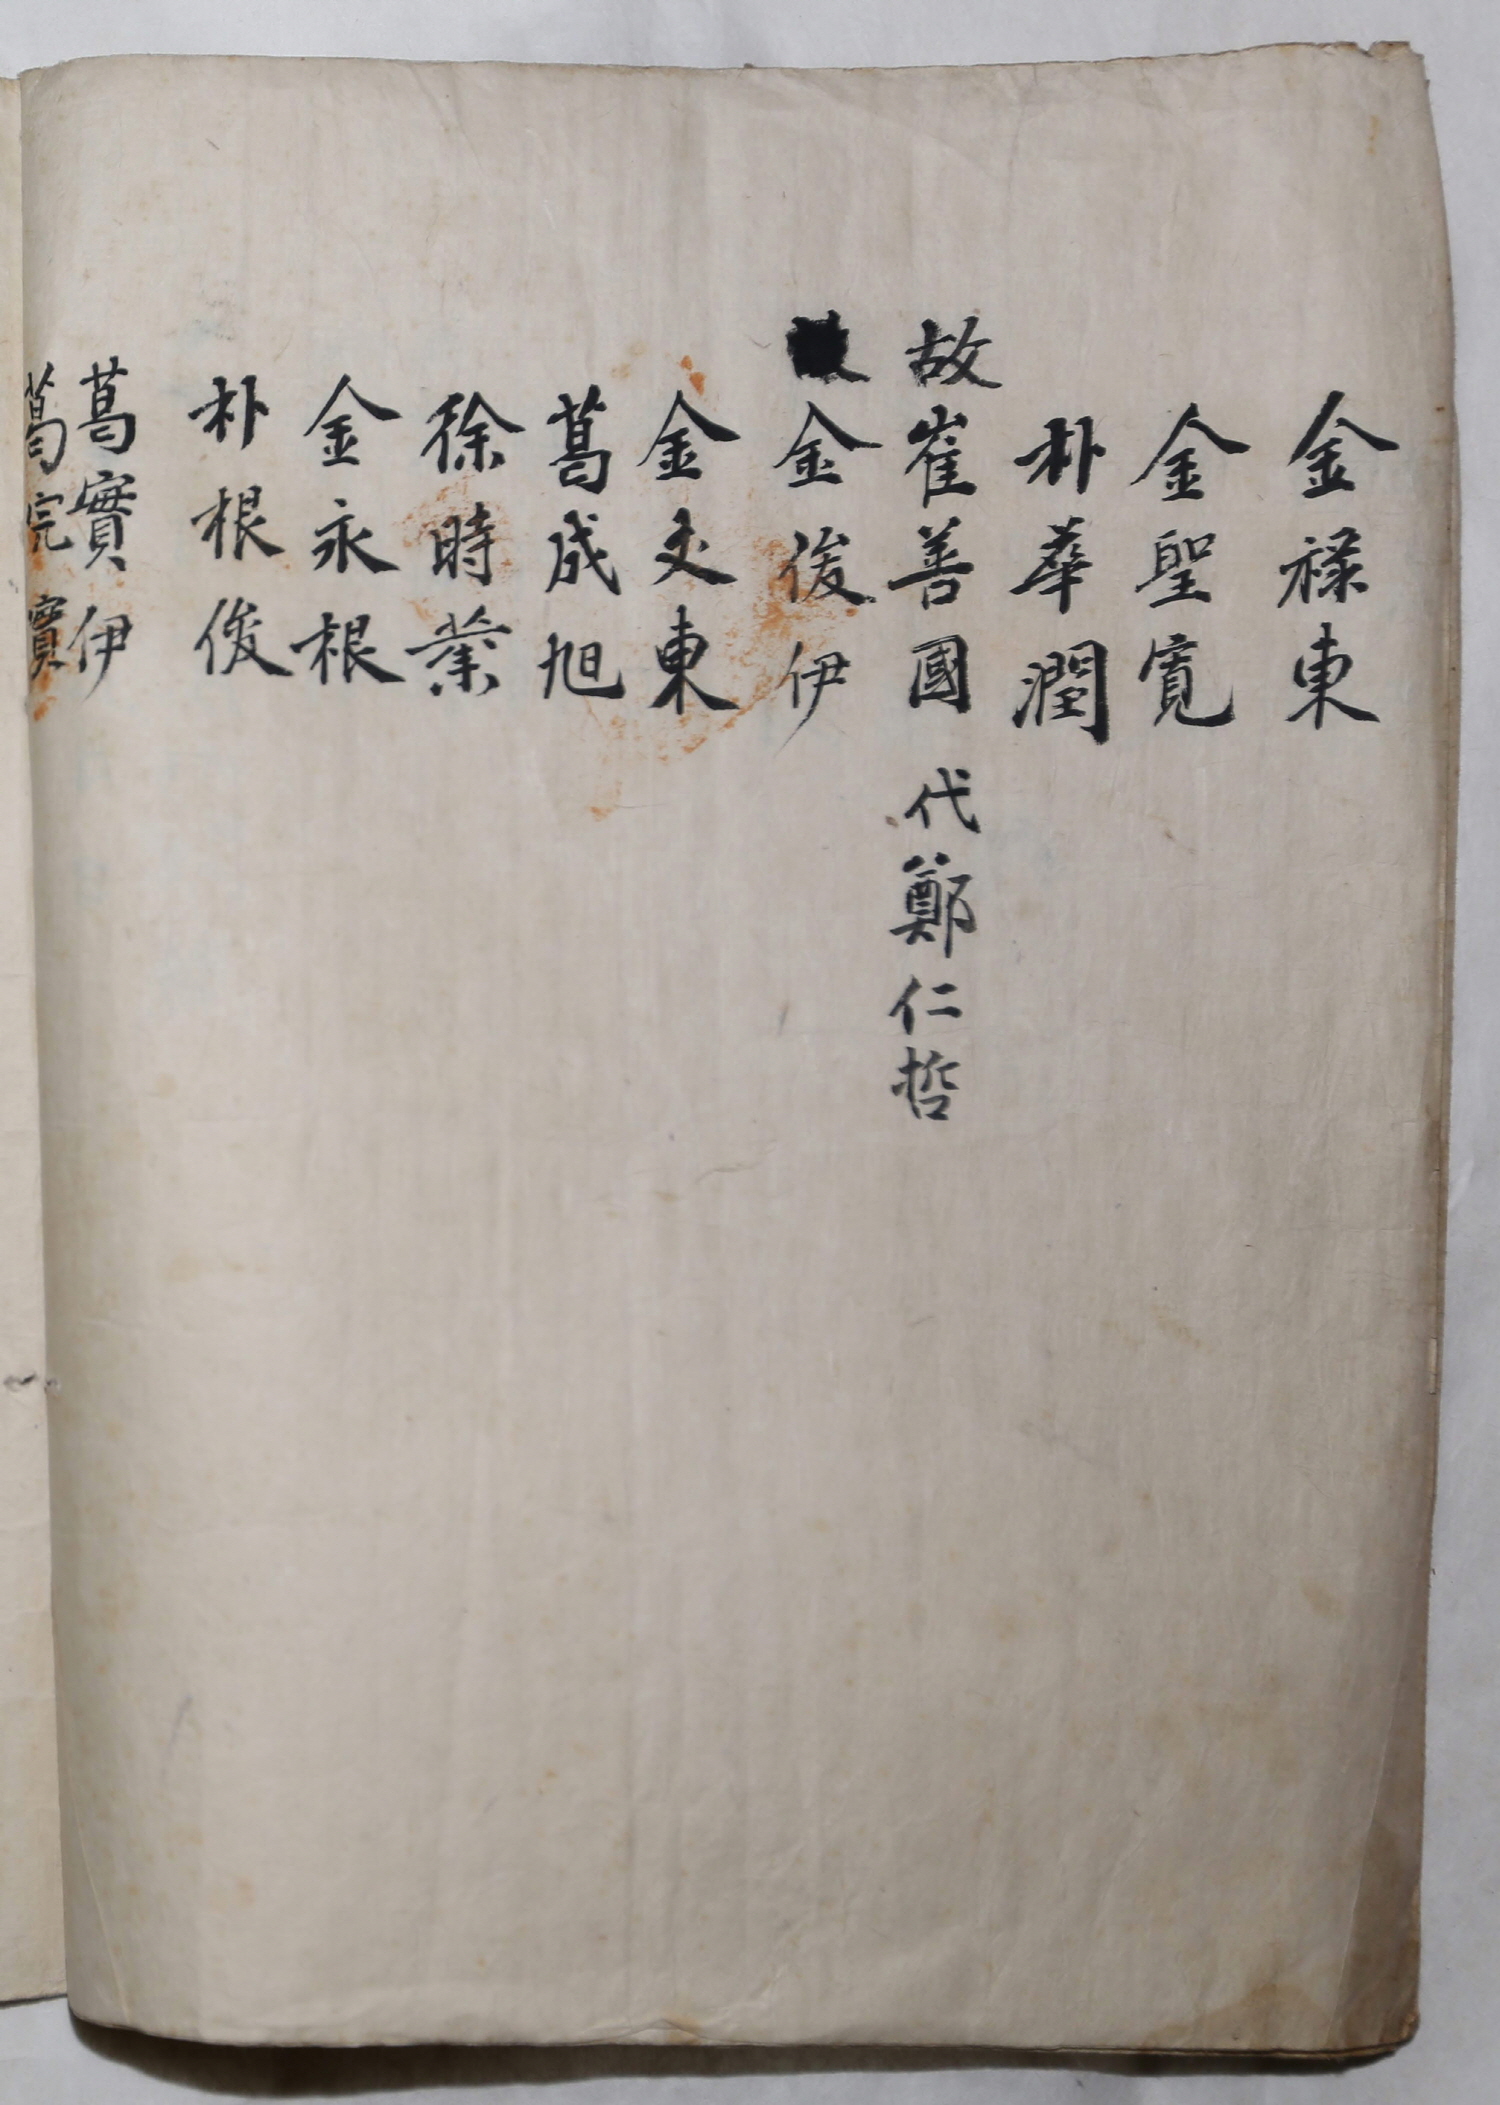 金祿東
金聖寬
朴華潤
故崔善國 代鄭仁哲
金俊伊
金文東
葛成旭
徐時業
金永根
朴根俊
葛實伊
葛完實